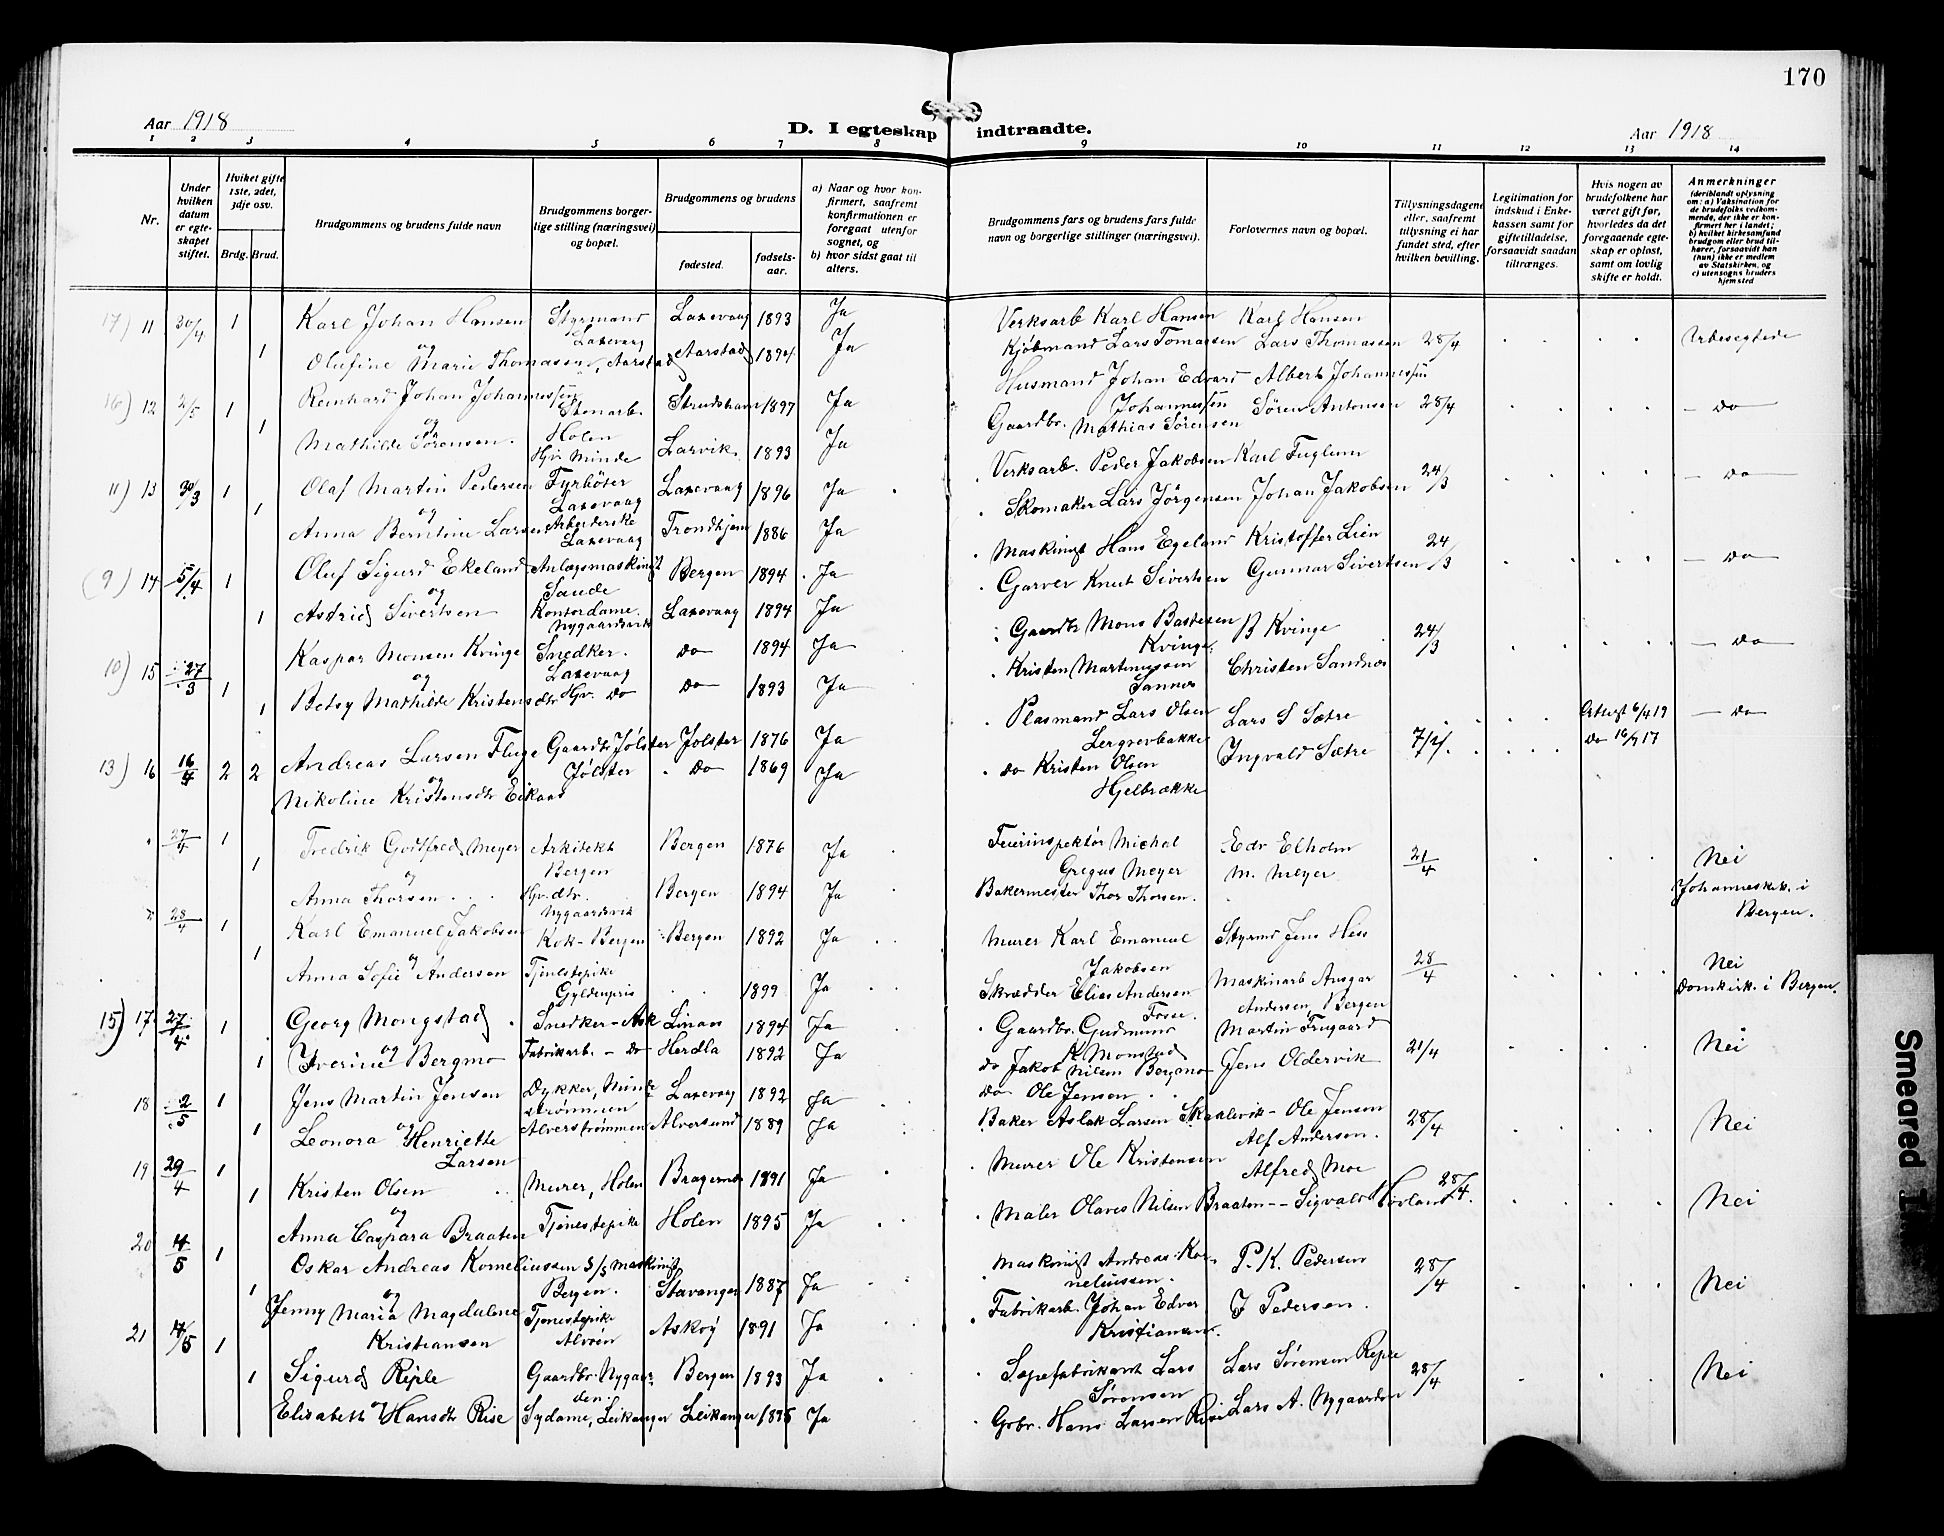 170
Aar 1918
D. I egteskap indtraadte.
Aar 1918
1 2 3 4 5 6 7 8 9 10 11 12 13 14
Nr.
Under hvilken datum er egteskapet stiftet.
Hviket gifte 1ste, 2det, 3dje osv.
Brdg. Brud.
Brudgommens og brudens fulde navn
Brudgommens borgerlige stilling (næringsvei) og bopæl.
Brudgommens og brudens
fødested.
fødselsaar.
a) Naar og hvor konfirmert, saafremt konfirmationen er foregaat utenfor sognet, og
b) hvor sidst gaat til alters.
Brudgommens fars og brudens fars fulde navn og borgerlige stillinger (næringsvei).
Forlovernes navn og bopæl.
Tillysningsdagene eller, saafremt tillysning ei har fundet sted, efter hvilken bevilling.
Legitimation for indskud i Enkekassen samt for giftetilladelse, forsaavidt saadan tiltrænges.
Hvis nogen av brudefolkene har været gift før, hvorledes da det foregaaende egteskap er opløst, samt om lovlig skifte er holdt.
Anmerkninger
(deriblandt oplysning om: a) Vaksination for de brudefolks vedkommende, der ikke er konfirmert her i landet; b) hvilket kirkesamfund brudgom eller brud tilhører, forsaavidt han (hun) ikke er medlem av Statskirken, og c) utensogns bruders hjemsted
17) 11 30/4 1 Karl Johan Hansen Styrmand Laxevaag Laxevaag 1893 Ja Verksarb Karl Hansen Karl Hansen
og
1 Olufine Marie Thomassen, Aarstad Aarstad 1894 Ja Kjøbmand Lars Tomassen Lars Thomassen 28/4
16) 12 2/5 1 Reinhard Johan Johannessen Stenarb. Holen Strudshavn 1897 Ja Husmand Johan Edvard Johannessen Albert Johannessen
og
1 Mathilde Sørensen. Hjv. Minde Larvik 1893 Ja Gaardbr. Mathias Sørensen Søren Antonsen 28/4 — do —
11) 13 30/3 1 Olaf Martin Pedersen Fyrbøter Laxevaag Laxevaag 1896 Ja Verksarb. Peder Jakobsen Karl Fuglum
og
1 Anna Berntine Larsen Arbeiderske Laxevaag Trondhjem 1886 Ja Skomaker Lars Jørgensen Johan Jakobsen 24/3 — do —
(9) 14 5/4 1 Oluf Sigurd Ekeland Anlægsmaskinist Sande Bergen 1894 Ja Maskinist Hans Egeland Kristoffer Lien
og
1 Astrid Sivertsen Kontordame Nygaardsvik Laxevaag 1894 Ja Garver Knut Sivertsen Gunnar Sivertsen 24/3 — do —
10) 15 27/3 1 Kaspar Monsen Kvinge Snedker. Laxevaag do 1894 Ja Gaardbr Mons Bastesen Kvinge. B Kvinge
og
1 Betsy Mathilde Kristensdtr Hjv. do do 1893 Ja Kristen Martinussen Sannes Christen Sandnes 24/3 — do —
13) 16 16/4 2 2 Andreas Larsen Fluge Gaardbr Jølster Jølster 1876 Ja Plasmand Lars Olsen Lergrovbakke Lars S Sætre 6/4 19 — do
og
Nikoline Kristensdtr Eikaas Jølster do 1869 Ja do Kristen Olsen Hjelbrække Ingvald Sætre 7/4. do
27/4 1 Fredrik Gottfred Meyer Arkitekt Bergen Bergen 1876 Ja Feierinspektør Michal Gregus Meyer Edv Elholm
og
1 Anna Thorsen Hjv. dtr. Nygaardsvik Bergen 1894 Ja Bakermester Thor Thorsen. M. Meyer 21/4 Nei Johanneskirk. i Bergen.
28/4 1 Karl Emanuel Jakobsen Kok - Bergen Bergen 1892 Ja Murer Karl Emanuel Jakobsen Styrmd Jens Hiis
og
1 Anna Sofie Andersen Tjenestepike Gyldenpris 1899 Ja Skrædder Elias Andersen Maskinarb Ansgar Andersen, Bergen 28/4 Nei Domkirk. i Bergen.
15) 17 27/4 1 Georg Mongstad Snedker - Ask Linaas 1894 Ja Gaardbr. Gudmund K Monstad Martin Frugaard
og
1 Iverine Bergmo Fabrikarb. - do Herdla 1892 Ja do Jakob Nilsen Bergmo Jens Oldervik 21/4 Nei
18 2/5 1 Jens Martin Jensen Dykker, Minde Laxevaag 1892 Ja do Ole Jensen Ole Jensen
og
1 Leonora Henriette Larsen Alverstrømmen Alversund 1889 Ja Baker Aslak Larsen Skaalevik - Alf Andersen. 28/4 Nei
19 29/4 1 Kristen Olsen Murer, Holen Bragernæs 1891 Ja Murer Ole Kristensen Alfred Moe
og
1 Anna Caspara Braaten Tjenestepike Holen 1895 Ja Maler Olaves Nilsen Braaten - Sigvald Hovland 28/4. Nei
20 4/5 1 Oskar Andreas Korneliussen S/S Maskinist Bergen. Stavanger 1887 Ja Maskinist Andreas Korneliussen. P. K. Pedersen
og
1 Jenny Maria Magdalene Kristiansen Tjenestepike Alvøen Askøy 1891 Ja Fabrikarb. Johan Edvar Kristiansen. J Pedersen. 28/4 Nei
21 4/5 1 Sigurd Riple Gaardbr. Nygaarden Bergen 1893 Ja Sæpefabrikant Lars Sørensen Lars Sørensen Riple
og
1 Elisabeth Hansdtr Rise Sydame, Leikanger Leikanger 1895 Ja Grbr. Hans Larsen Rise Lars A. Nygaarden 28/4 Nei
Smeared I